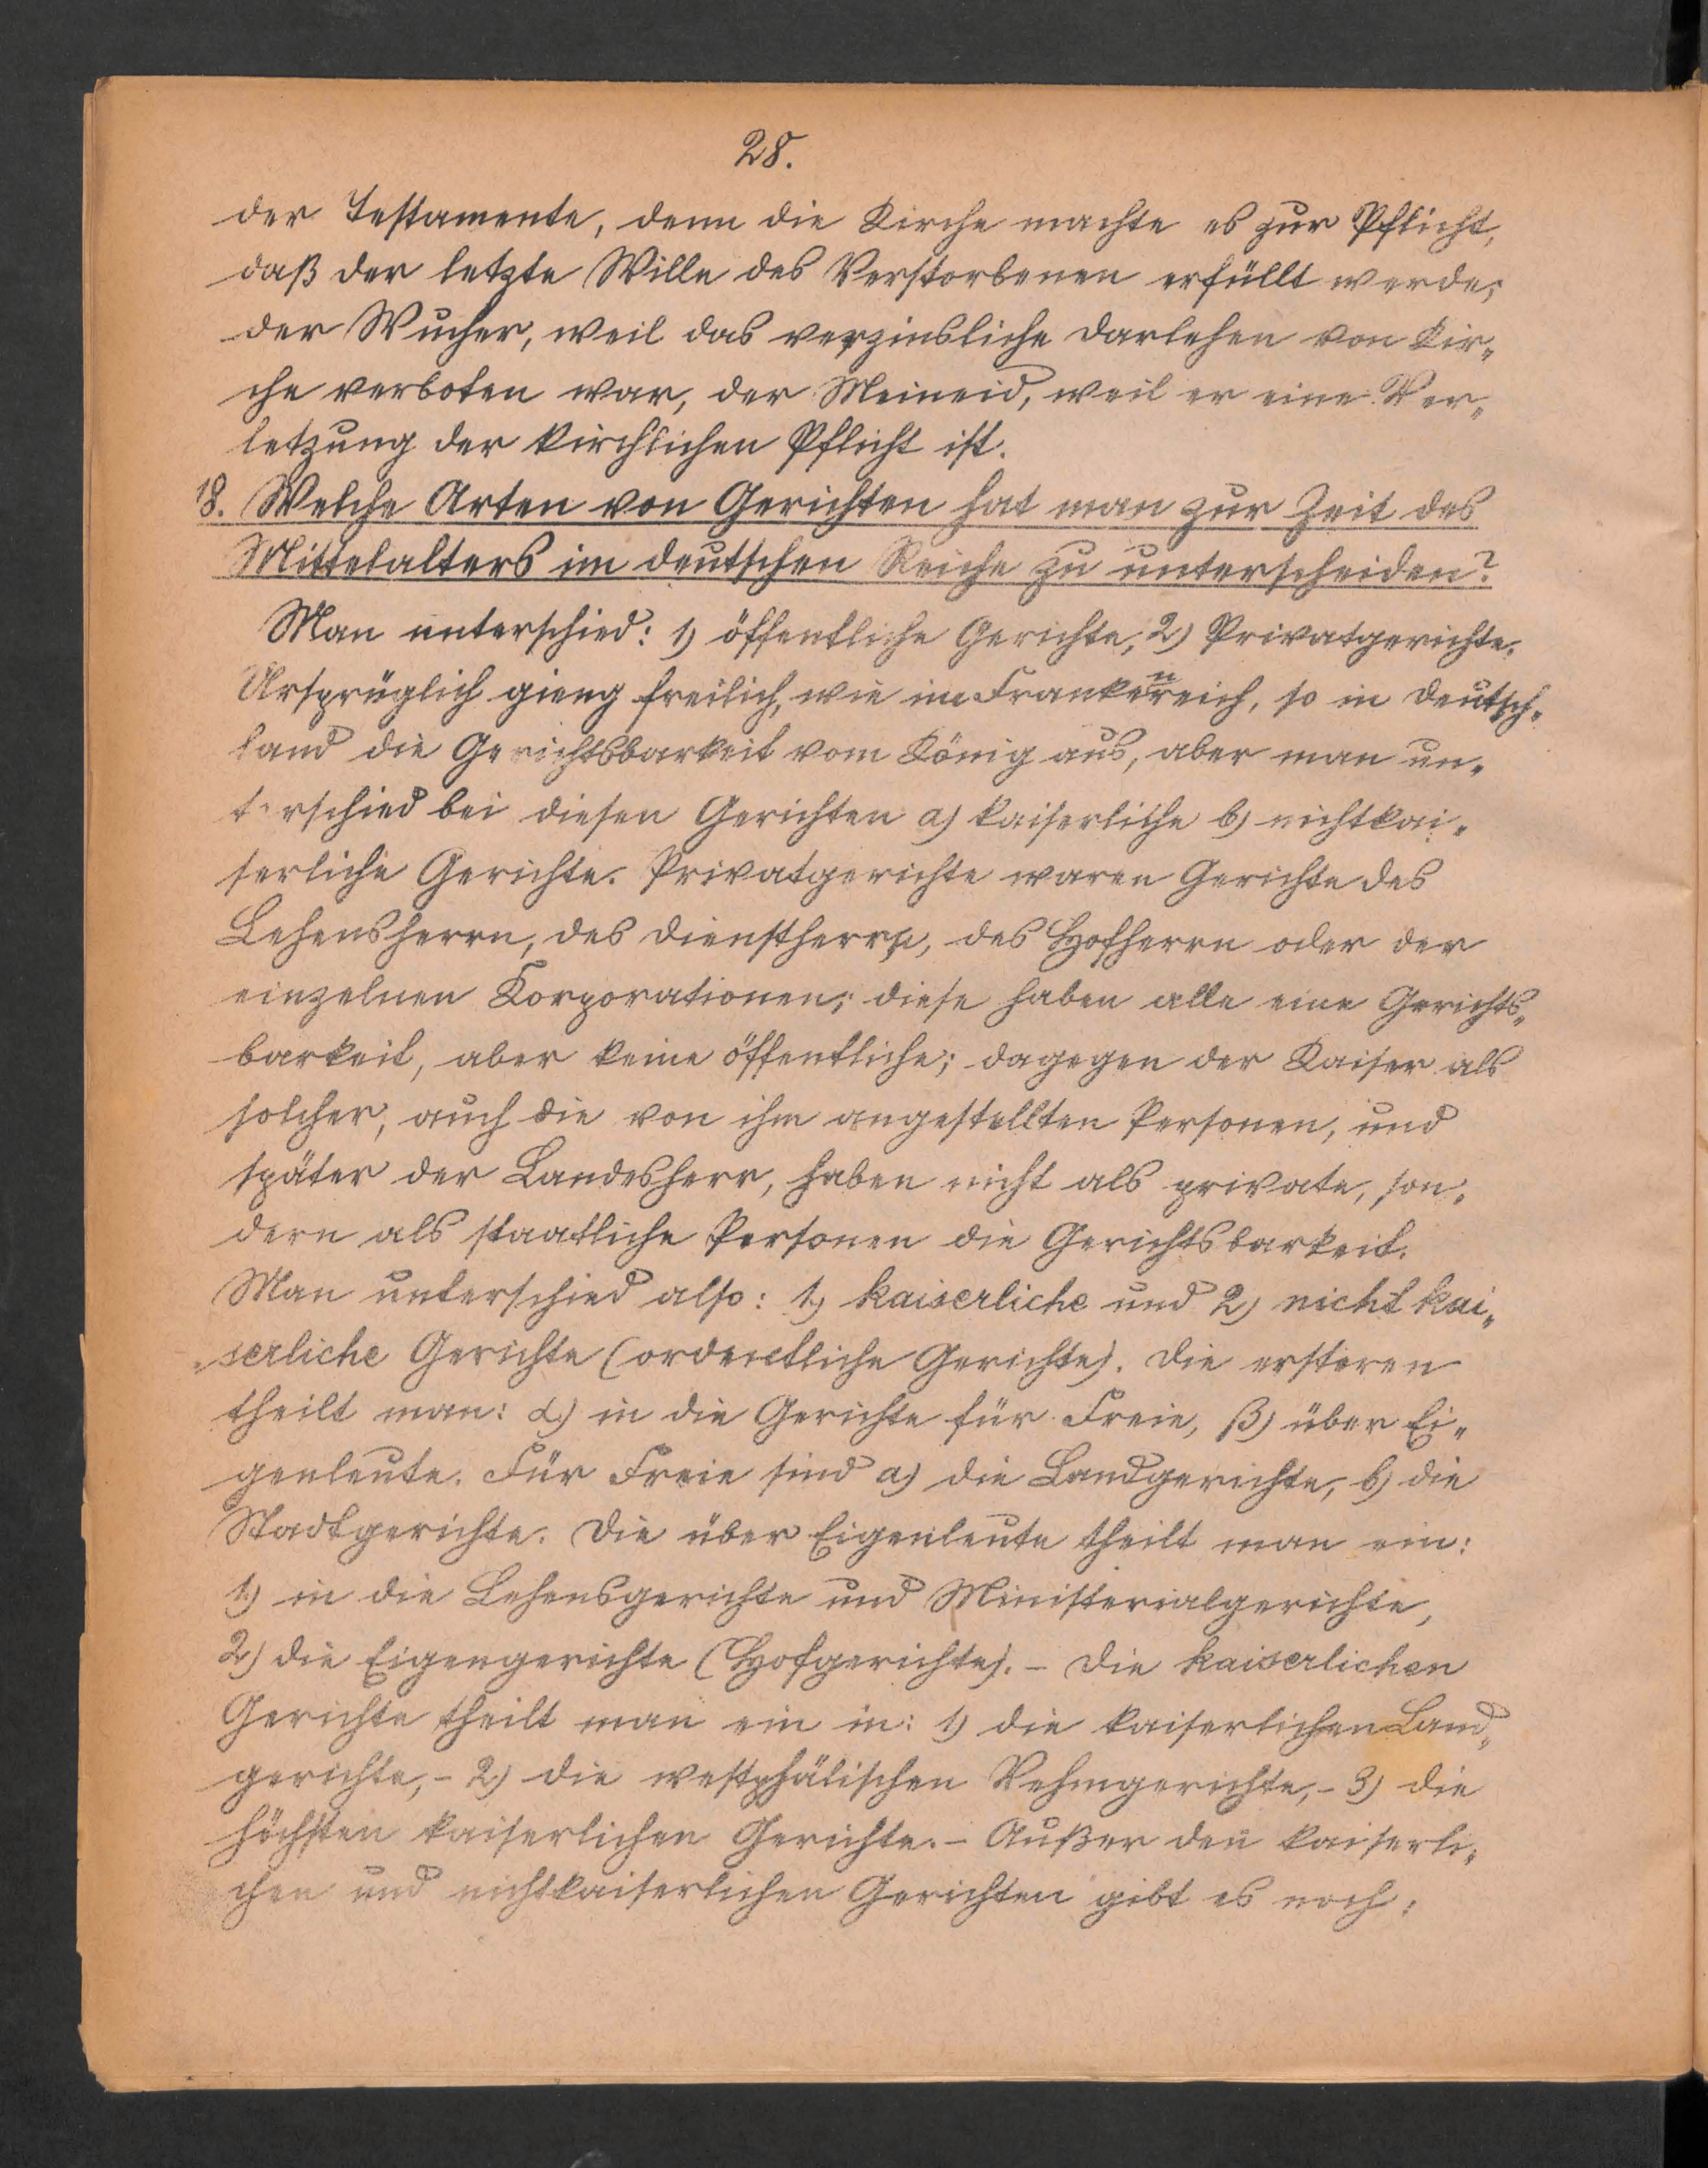 28.
der Testamente, denn die Kirche machte es zur Pflicht,
daß der letzte Wille des Verstorbenen erfüllt werde;
der Wucher, weil das verzinsliche Darlehen von Kir„
che verboten war, der Meineid, weil er eine Ver„
letzung der kirchlichen Pflicht ist.
18. Welche Arten von Gerichten hat man zur Zeit des
Mittelalters im deutschen Reiche zu unterscheiden?
Man unterschied: 1) öffentliche Gerichte, 2) Privatgerichte.
Ursprüglich gieng freilich, wie im Frankenreich, so in Deutsch„
land die Gerichtsbarkeit vom König aus, aber man un„
terschied bei diesen Gerichten a) kaiserliche b) nichtkai„
serliche Gerichte. Privatgerichte waren Gerichte des
Lehensherrn, des Dienstherrn, des Hofherrn oder der
einzelnen Korporationen; diese haben alle eine Gerichts„
barkeit, aber keine öffentliche; dagegen der Kaiser als
solcher, auch die von ihm angestellten Personen, und
später der Landesherr, haben nicht als private, son„
dern als staatliche Personen die Gerichtsbarkeit.
Man unterschied also: 1.) kaiserliche und 2) nicht kai„
„serliche Gerichte (ordentliche Gerichte). Die ersteren
theilt man: α.) in die Gerichte für Freie, β) über Ei„
genleute. Für Freie sind a.) die Landgerichte, b) die
Stadtgerichte. Die über Eigenleute theilt man ein:
1.) in die Lehensgerichte und Ministerialgerichte,
2.) die Eigengerichte (Hofgerichte). – Die kaiserlichen
Gerichte theilt man ein in: 1) die kaiserlichen Land„
gerichte, – 2.) die westphälischen Vehmgerichte, – 3) die
höchsten kaiserlichen Gerichte. – Außer den kaiserli„
chen und nichtkaiserlichen Gerichten gibt es noch: